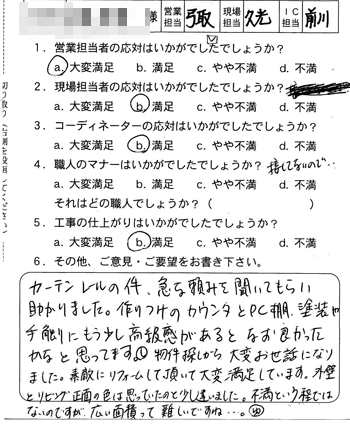 様 営業担当 弓取 現場担当 久光 IC担当 前川
1. 営業担当者の応対はいかがでしたでしょうか？
a. 大変満足 b. 満足 c. やや不満 d. 不満
2. 現場担当者の応対はいかがでしたでしょうか？
a. 大変満足 b. 満足 c. やや不満 d. 不満
3. コーディネーターの応対はいかがでしたでしょうか？
a. 大変満足 b. 満足 c. やや不満 d. 不満
4. 職人のマナーはいかがでしたでしょうか？ 接してないので…
a. 大変満足 b. 満足 c. やや不満 d. 不満
それはどの職人でしょうか？（ ）
5. 工事の仕上がりはいかがでしたでしょうか？
a. 大変満足 b. 満足 c. やや不満 d. 不満
6. その他、ご意見・ご要望をお書き下さい。
カーテンレールの件、急な頼みを聞いてもらい
助かりました。作りつけのカウンタとPC棚、塗装や
手触りにもう少し高級感があるとなお良かった
かなと思ってます 物件探しから大変お世話になり
ました。素敵にリフォームして頂いて大変満足しています。外壁
とリビング正面の色は思っていたのと少し違いました。不満という程では
ないのですが、広い面積って難しいですね…。